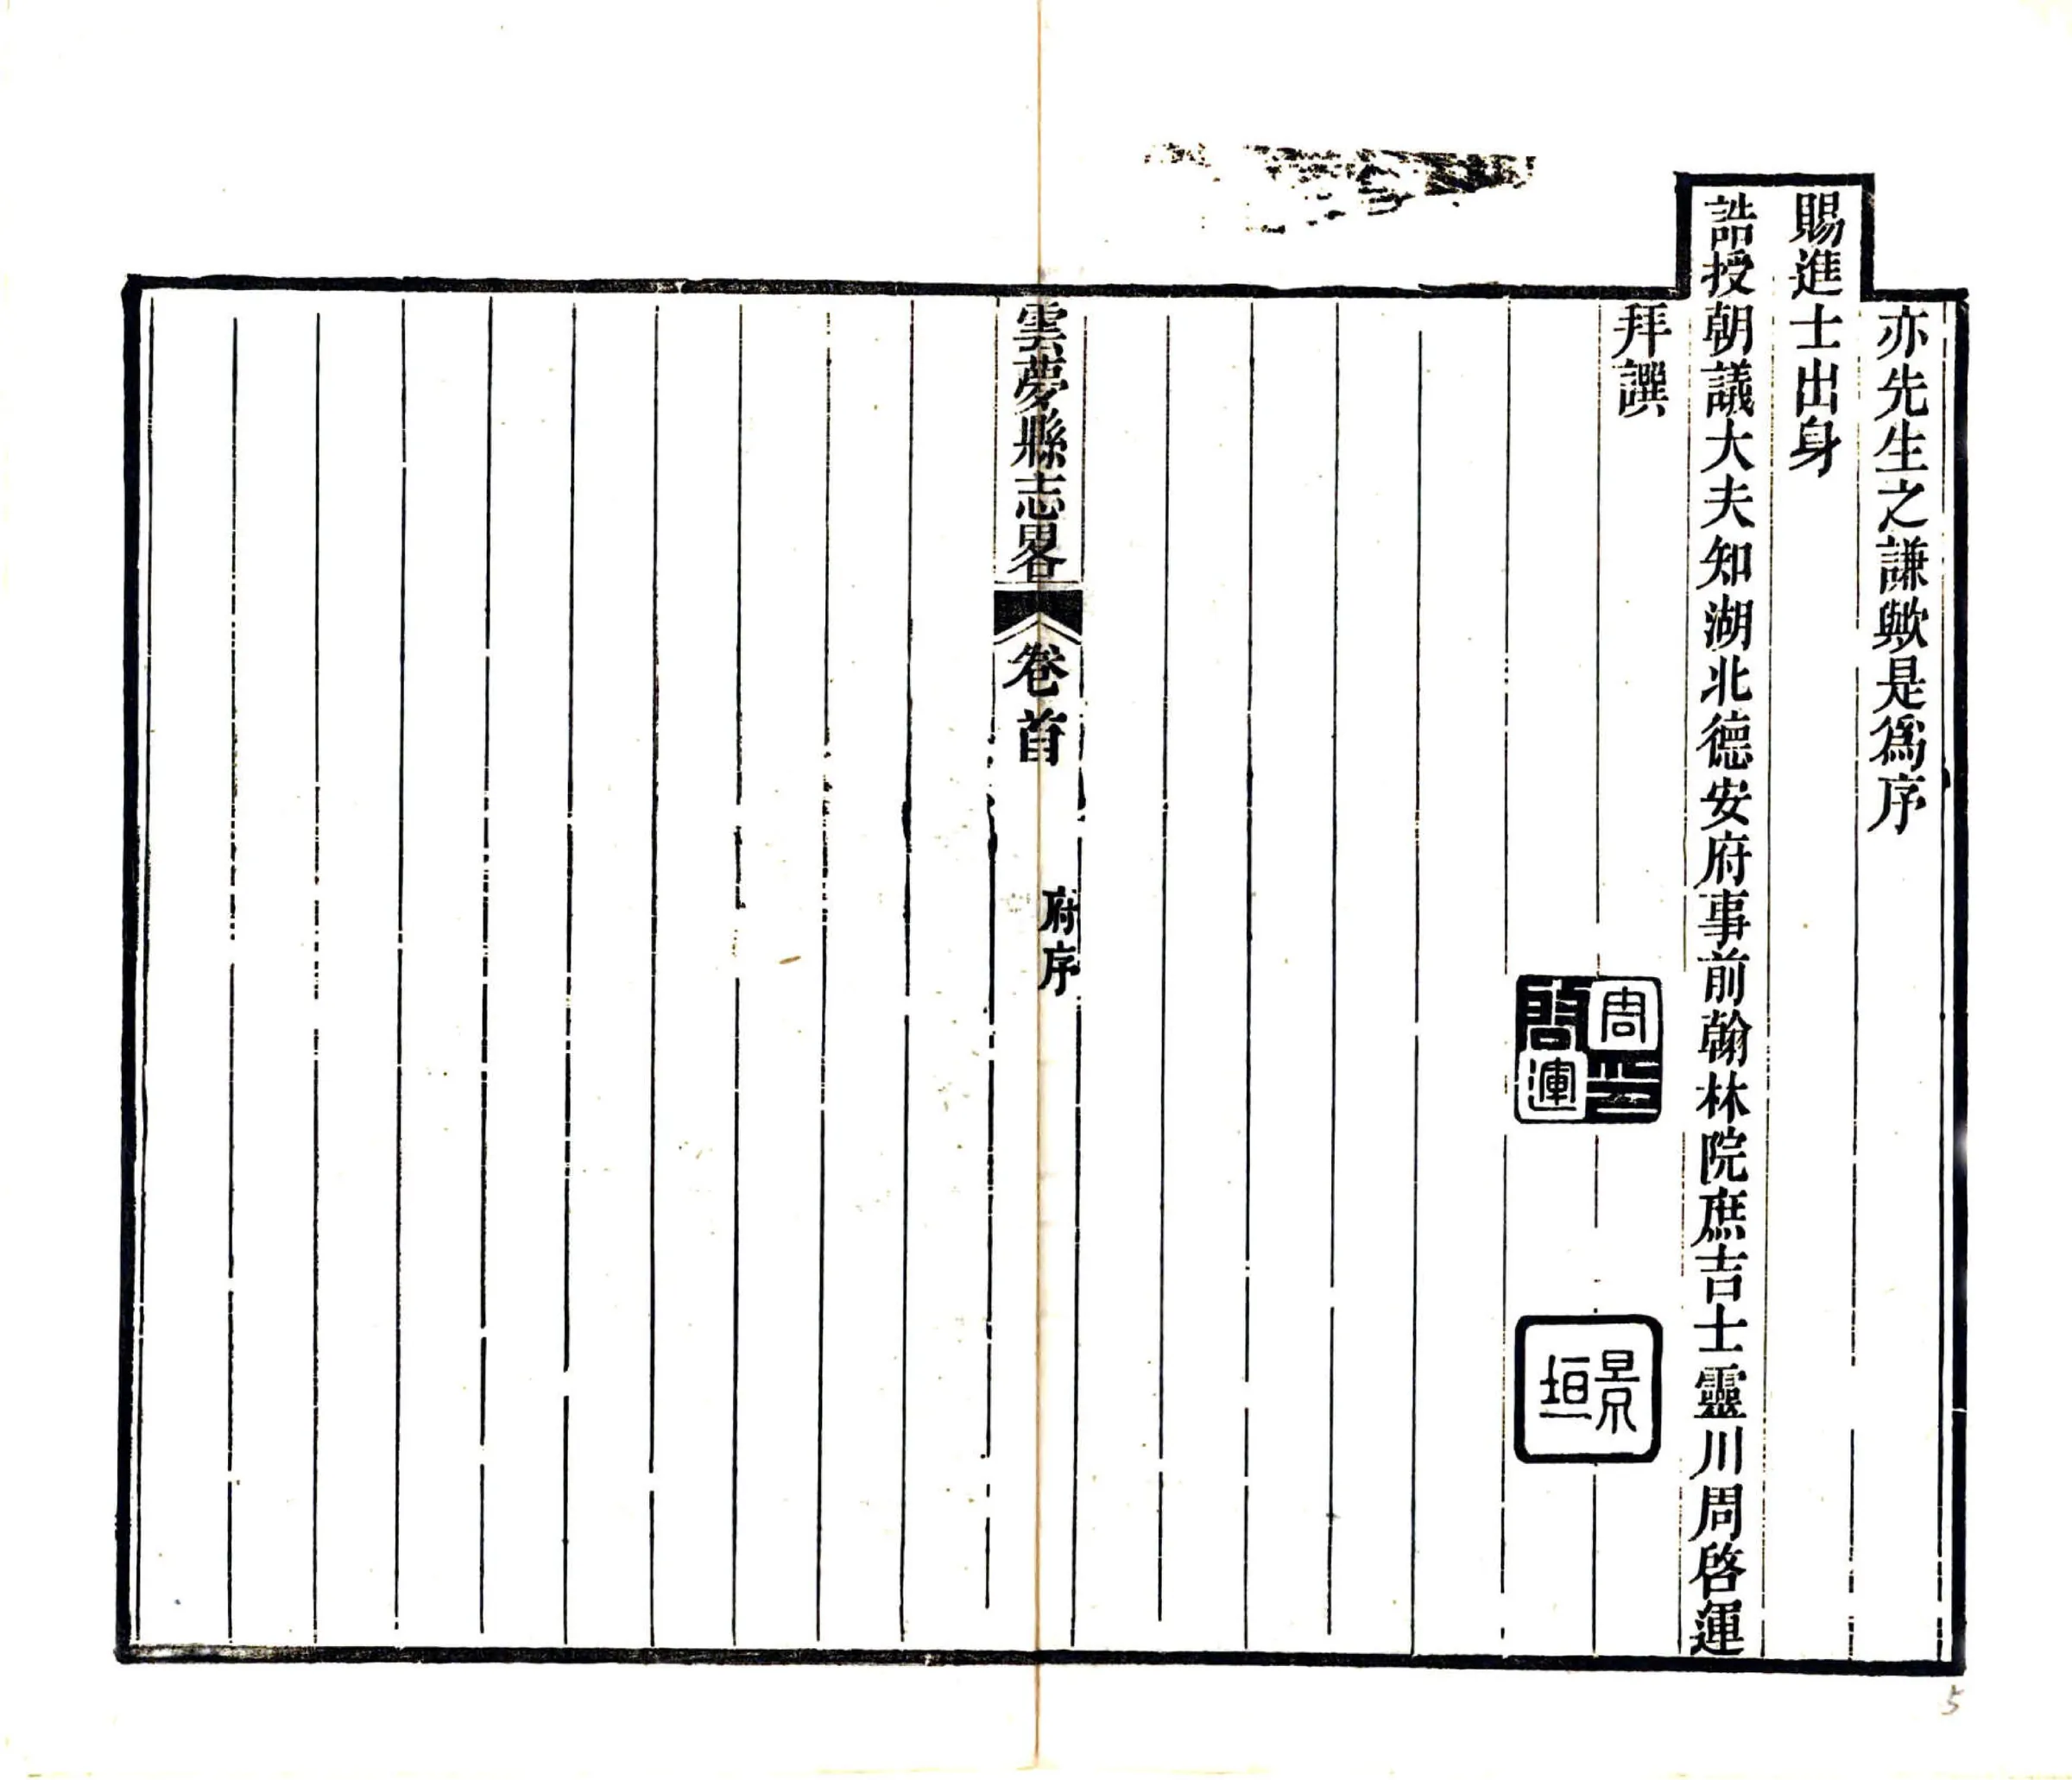 亦先生之謙歟是爲序
賜進士出身
誥授朝議大夫知湖北德安府事前翰林院庶吉士靈川周啓運
拜譔
周印
啓運
景
垣
雲夢縣志畧 卷首 府序
5